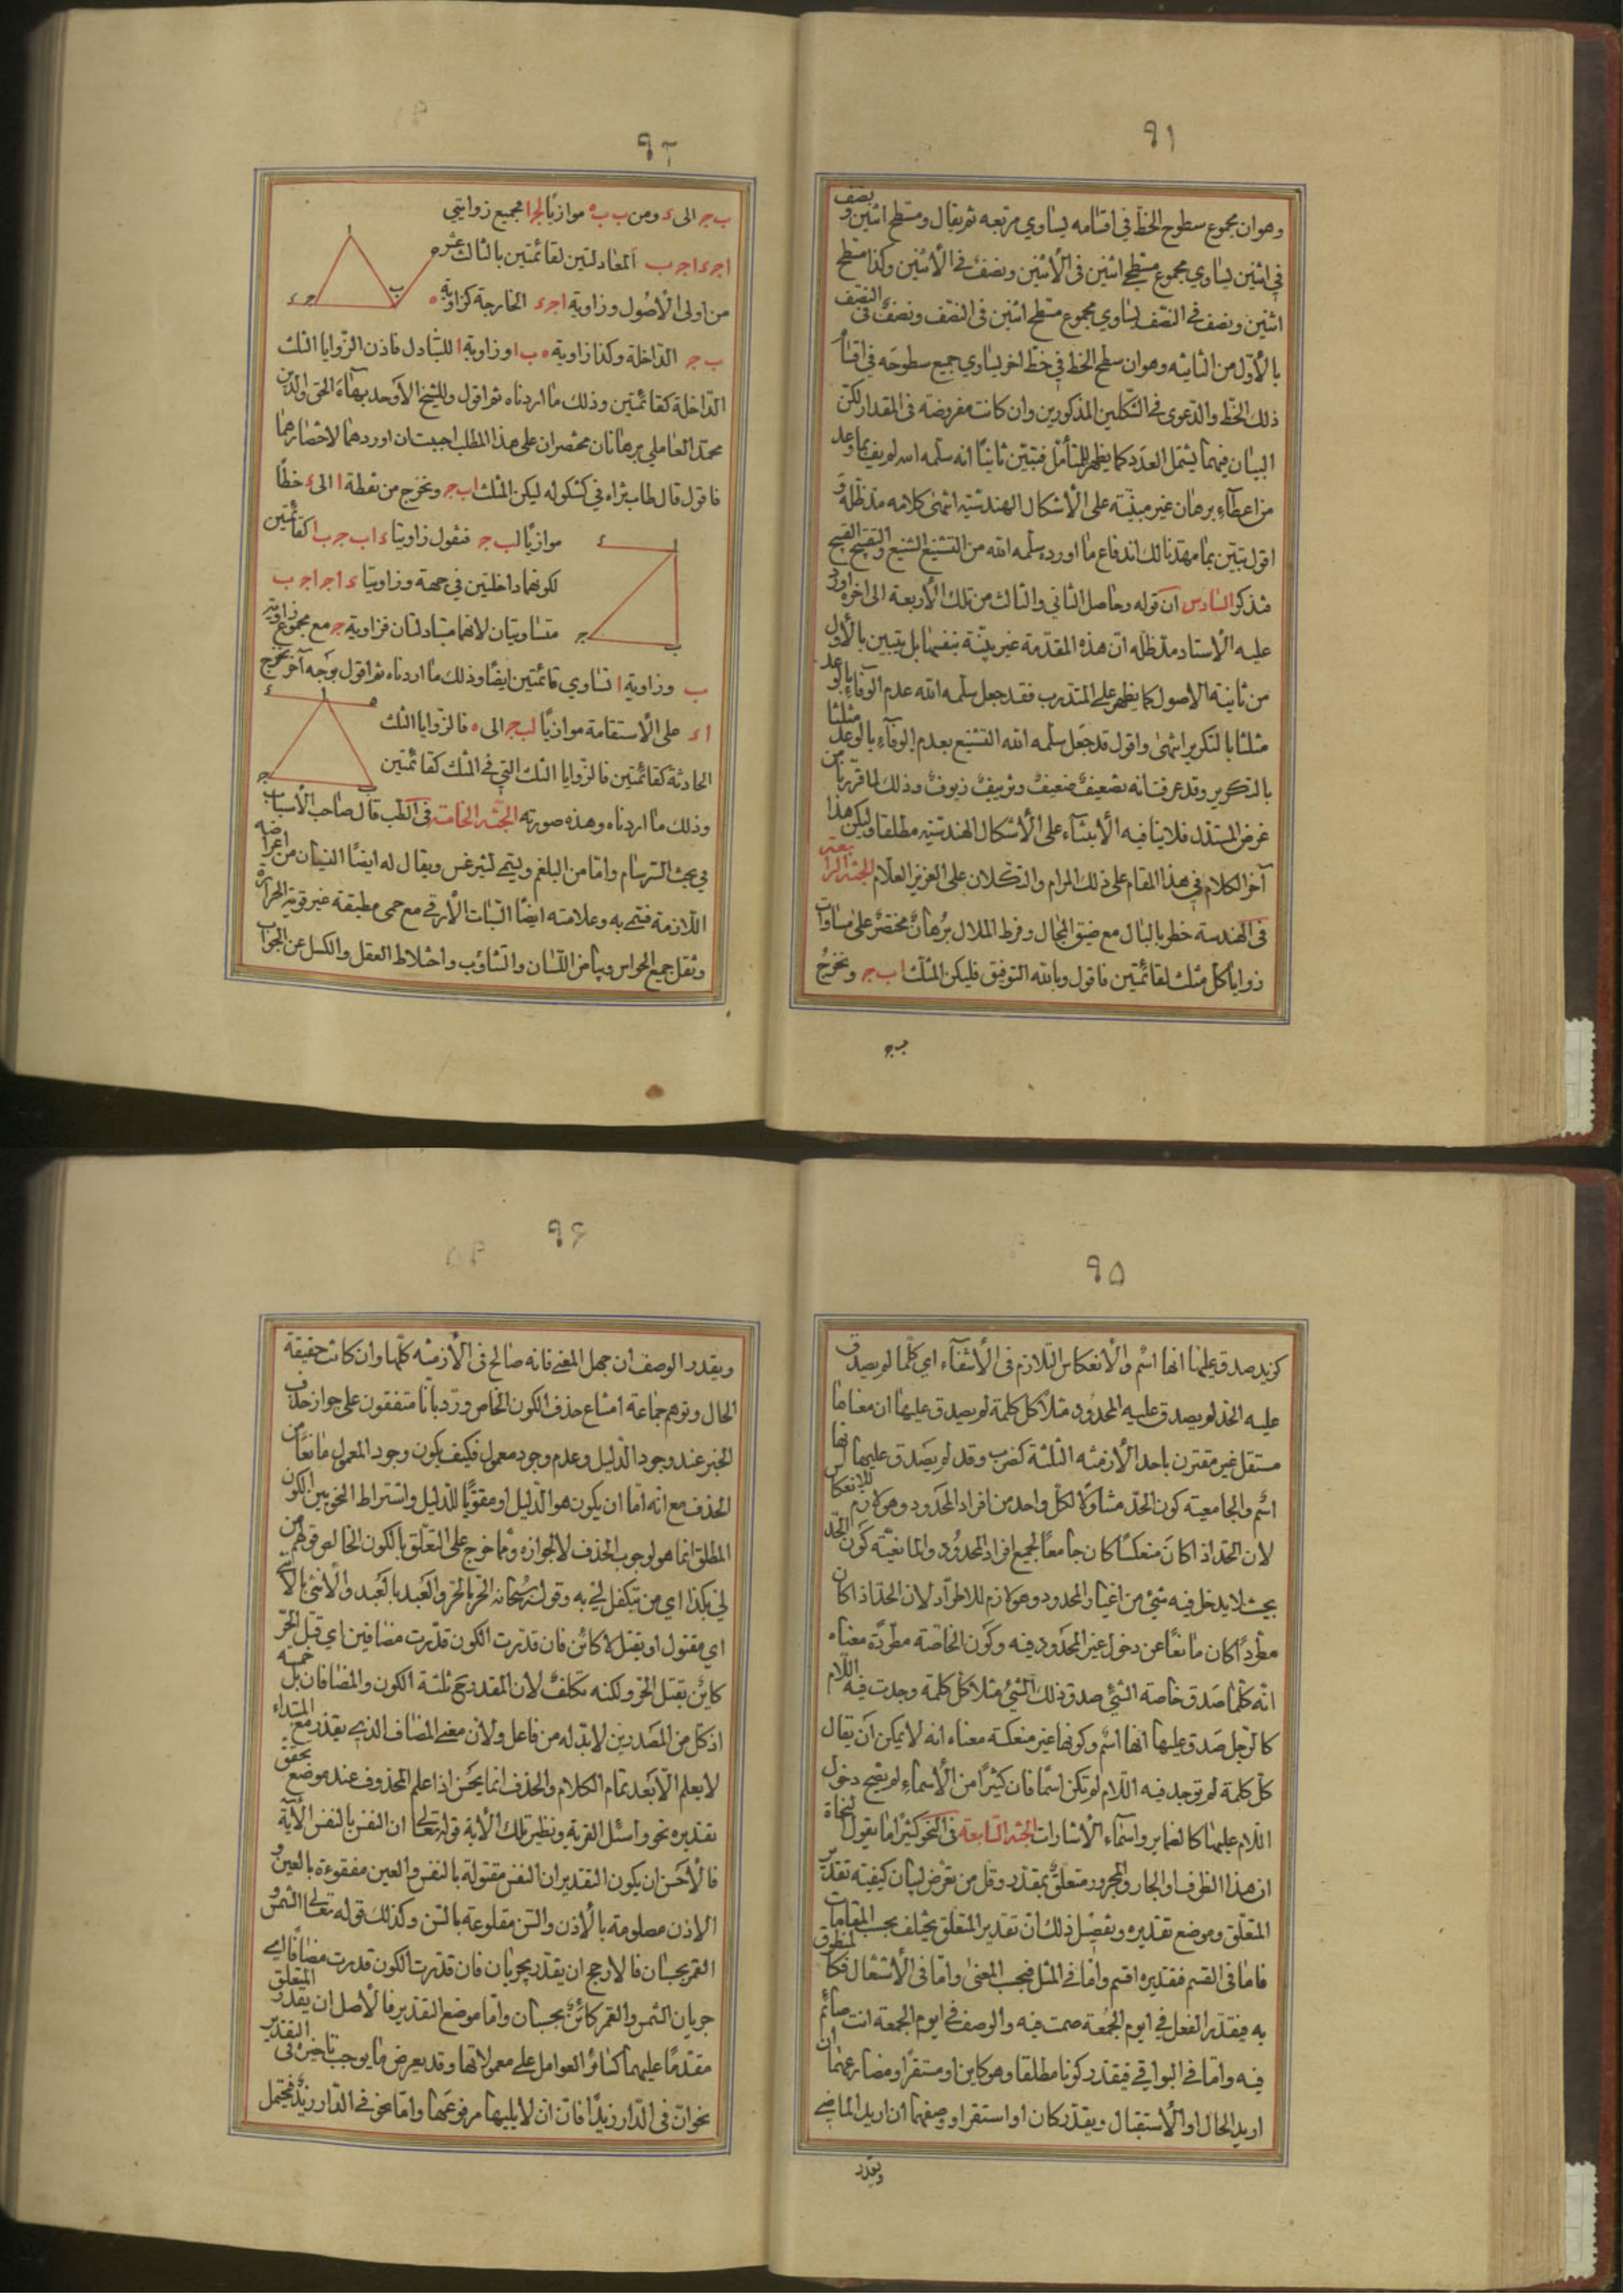 ٩١
وهو ان مجموع سطوح الخط في اقسامه يساوي مربعه ثم يقال ومسطح اثنين ونصف
في اثنين يساوي مجموع مسطح اثنين في الأثنين ونصف في الأثنين وكذا مسطح
اثنين ونصف في النصف يساوي مجموع مسطح اثنين في النصف ونصف في النصف
بالأول من الثانيه وهو ان سطح الخط في خط اخر يساوي جميع سطوحه في اقسام
ذلك الخط والدعوى في الشكلين المذكورين وان كانت مفروضته في المقدار لكن
البيان فيهما يشتمل العدد كما يظهر للمتأمل فتبين ثانيًا انه سلمه الله لم يف بما وعد
من اعطاء برهان غير مبنيّة على الأشكال الهندسّيه انتهى كلامه مد ظلّه و
اقول تبيّن بما مهدنا لك اندفاع ما اورده سلمه الله من التشنيع الشنيع والتقبيح القبيح
فتذكر السادس ان قوله وحاصل الثاني والثالث من تلك الأربعة الى اخره اورد
عليه الأستاد مد ظله انّ هذه المقدّمة غير بيّنة بنفسها بل يتبين بالأول
من ثانية الاصول كما يظهر على المتدرب فقد جعل سلمه الله عدم الوفاء بالوعد
مثلثا بالتكرير انتهى واقول قد جعل سلمه الله التشنيع بعدم الوفاء بالوعد مثلثا
بالتكرير وقد عرفت انه تضعيفٌ ضعيفٌ وتزييفٌ زيوفٌ وذلك لما قرّرنا من
غرض المستدل فلا ينافيه الأبتناء على الأشكال الهندسّيه مطلقا وليكن هذا
آخر الكلام في هذا المقام على ذلك المرام والتكلان على العزيز العلّام الجنّه الرابعة
في الهندسة خطر بالبال مع ضيق المجال وفرط الملال بُرهانٌ مختصرٌ على مساوات
زوايا كل مثلث لقائمتين فاقول وبالله التوفيق فليكن المثلث ا ب جـ ونخرج
ب جـ
٩٢
ب جـ الى ء ومن ب ب ه موازيًا لجـ ا فجميع زوايتي
ا جـ ء ا جـ ب المعادلتين لقائمتين بالثالث عشر
من اولى الأصول وزاوية ا جـ ء الخارجة كزاوية ه
ب جـ الداخلة وكذا زاوية ه ب ا وزاوية ا للتبادل فاذن الزّوايا الثلث
الداخلة كقائمتين وذلك ما اردناه ثم اقول وللشيخ الأوحد بهاء الحق والدين
محمّد العاملي برهانان مختصران على هذا المطلب احببت ان اوردهما لاختصارهما
فاقول قال طاب ثراه في كشكوله ليكن المثلث ا ب جـ ونخرج من نقطة ا الى ء خطًا
موازيًا لب جـ فنقول زاويتا ء ا ب جـ ب ا كقائمتين
لكونهما داخلتين في جهة وزاويتا ء ا جـ ا جـ ب
متساويتان لانهما متبادلتان فزاوية جـ مع مجموع زاوية
ب وزاوية ا تساوي قائمتين ايضًا وذلك ما اردناه ثم اقول بوَجه آخر نخرج
ا ء على الأستقامة موازيًا لب جـ الى ه فالزّوايا الثلث
الحادثة كقائمتين فالزّوايا الثلث التي في المثلث كقائمتين
وذلك ما اردناه وهذه صورته الجنّه الخامسة في الطّب قال صاحب الأسباب
في بحث السّرسام وامّا من البلغم ويسمّى ليثرغس ويقال له ايضًا النسيان من اعراضه
اللازمة فسّمى به وعلامته ايضًا السّبات الأرقي مع حمى مطبقة غير قوية الحرارة
وثقل جميع الحواس وبياض اللّسان والتثاؤب واختلاط العقل والكسل عن الجواب
٩٥
كزيد صدق عليها انها اسْم والأنعكاس التلازم في الأنتفاء اي كلّما لم يصدق
عليه الحدّ لم يصدق عليه المحدود مثلًا كل كلمة لم يصدق عليها ان معناها
مستقل غير مقترن باحد الأزمنه الثلثة كضرب وقد لم يصَدق عليها انها
اسْم والجامعيته كون الحدّ مشاولًا لكل واحد من افراد المحدود وهو لازم للانعكاس
لان الحدّ اذا كانَ منعكسًا كان جامعًا لجميع افراد المحدود والمانعّيّة كَون الحدّ
بحيث لا يدخل فيه شئ من اغيار المحدود وهو لازم للاطراد لان الحدّ اذا كان
مطردًا كان مانعًا عن دخول غير المحدود فيه وكَون الخاصّة مطّردة معناه
انّه كلّما صَدق خاصّة الشئ صدق ذلك الشئ مثلا كل كلمة وجدت فيه اللّام
كالرّجل صَدق عليها انها اسْم وكونها غير منعكسة معناه انه لا يمكن ان يقال
كل كلمة لم توجد فيه اللّام لم تكن اسما فان كثيرًا من الأسماء لم يصح دخول
اللام عليها كالضماير واسماء الأشارات الجنّه السّابعة في النحو كثيرًا ما يقول النحاة
ان هذا الظرف او الجار والمجرور متعلّق بمقدّر وقل من تعرّض لبيان كيفية تقدير
المتعلّق وموضع تقديره وتفصيل ذلك انّ تقدير المتعلق يختلف بحسب المقامات
فامّا في القسم فتقديره اقسم وامّا في المثل فبحسب المعنى وامّا في الأشتغال فكالمنطوق
به فيقدّر الفعل في ايوم الجمعة صمت فيه والوصف في ايوم الجمعة انت صائم
فيه وامّا في البواقي فيقدّر كونا مطلقا وهو كاين او مستقرّ او مضارعهما ان
اريد الحال او الأستقبال ويقدّر كان او استقر او وصفهما ان اريد الماضي
ويقدر
٩٦
ويقدر الوصف ان جهل المعنى فانه صالح في الأزمنه كلّها وان كانت حقيقة
الحال وتوهم جماعة امتناع حذف الكون الخاص وردّ بانّا متفقون على جواز حذف
الخبر عند وجود الدّليل وعدم وجود معمول فكيف يكون وجود المعمول مانعًا من
الحذف مع انّه امّا ان يكون هو الدّليل او مقوّيًا للدّليل واشتراط النحويين الكون
المطلق انما هو لوجوب الحذف لا لجوازه وممّا خرج على التعّلق بالكون الخاص قولهم من
لي بكذا اي من يتكفل لي به وقوله سُبحانه الحّر بالحرّ والعَبد بالعَبد والأنثى بالأنثى
اي مقتول او يقتل لا كائن فان قدّرت الكون قدّرت مضافين اي قتل الحّر
كاين بقتل الحرّ ولكنه تكلفٌ لان المقدر ح ثلثة الكون والمضافان بل خمسه
اذ كل من المصَدرين لا بدّ له من فاعل ولان معنى المضاف الذي يقدّر مع المبتداء
لا يعلم الّا بَعد تمام الكلام والحذف انما يحسَن اذا علم المحذوف عند موضع تحقق
تقديره نحو واسئل القرية ونظير تلك الأية قوله تعالى ان النفس بالنفس الأية
فالأحسَن ان يكون التقدير ان النفس مقتولة بالنفس والعين مفقوءة بالعين و
الاذن مصلومة بالأذن والسّن مقلوعة بالسّن وكذلك قوله تعالى الشمس و
القمر بحسبان فالارجح ان يقدّر يجريان فان قدّرت الكون قدرت مضافا اي
جريان الشمس والقمر كائنٌ بحسبان وامّا موضع التقدير فالأصل ان يقدّر المتعلق
مقدّمًا عليهما كسائر العوامل على معمولاتها وقد يعرض ما يوجب تاخيره في التقدير
نحو انّ في الدّار زيدًا فان انّ لا يليها مرفوعها وامّا نحو في الدّار زيدٌ فيحتمل